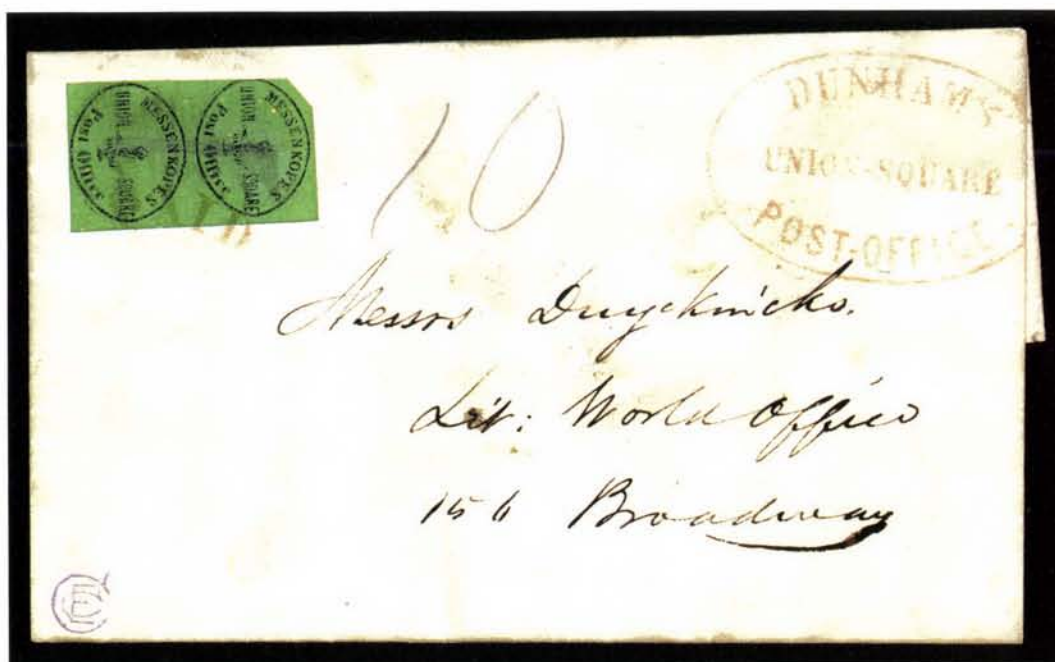 MESSENKOPES
UNION SQUARE
Post Office
MESSENKOPES
UNION SQUARE
Post Office
10
DUNHAM'S
UNION-SQUARE
POST-OFFICE
Messrs Duyckincks.
Lit: World Office
156 Broadway